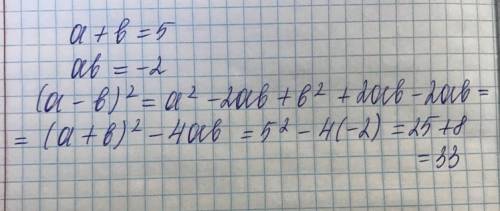 a + b = 5
ab = -2
(a - b)² = a² - 2ab + b² + 2ab - 2ab =
= (a + b)² - 4ab = 5² - 4(-2) = 25 + 8
= 33